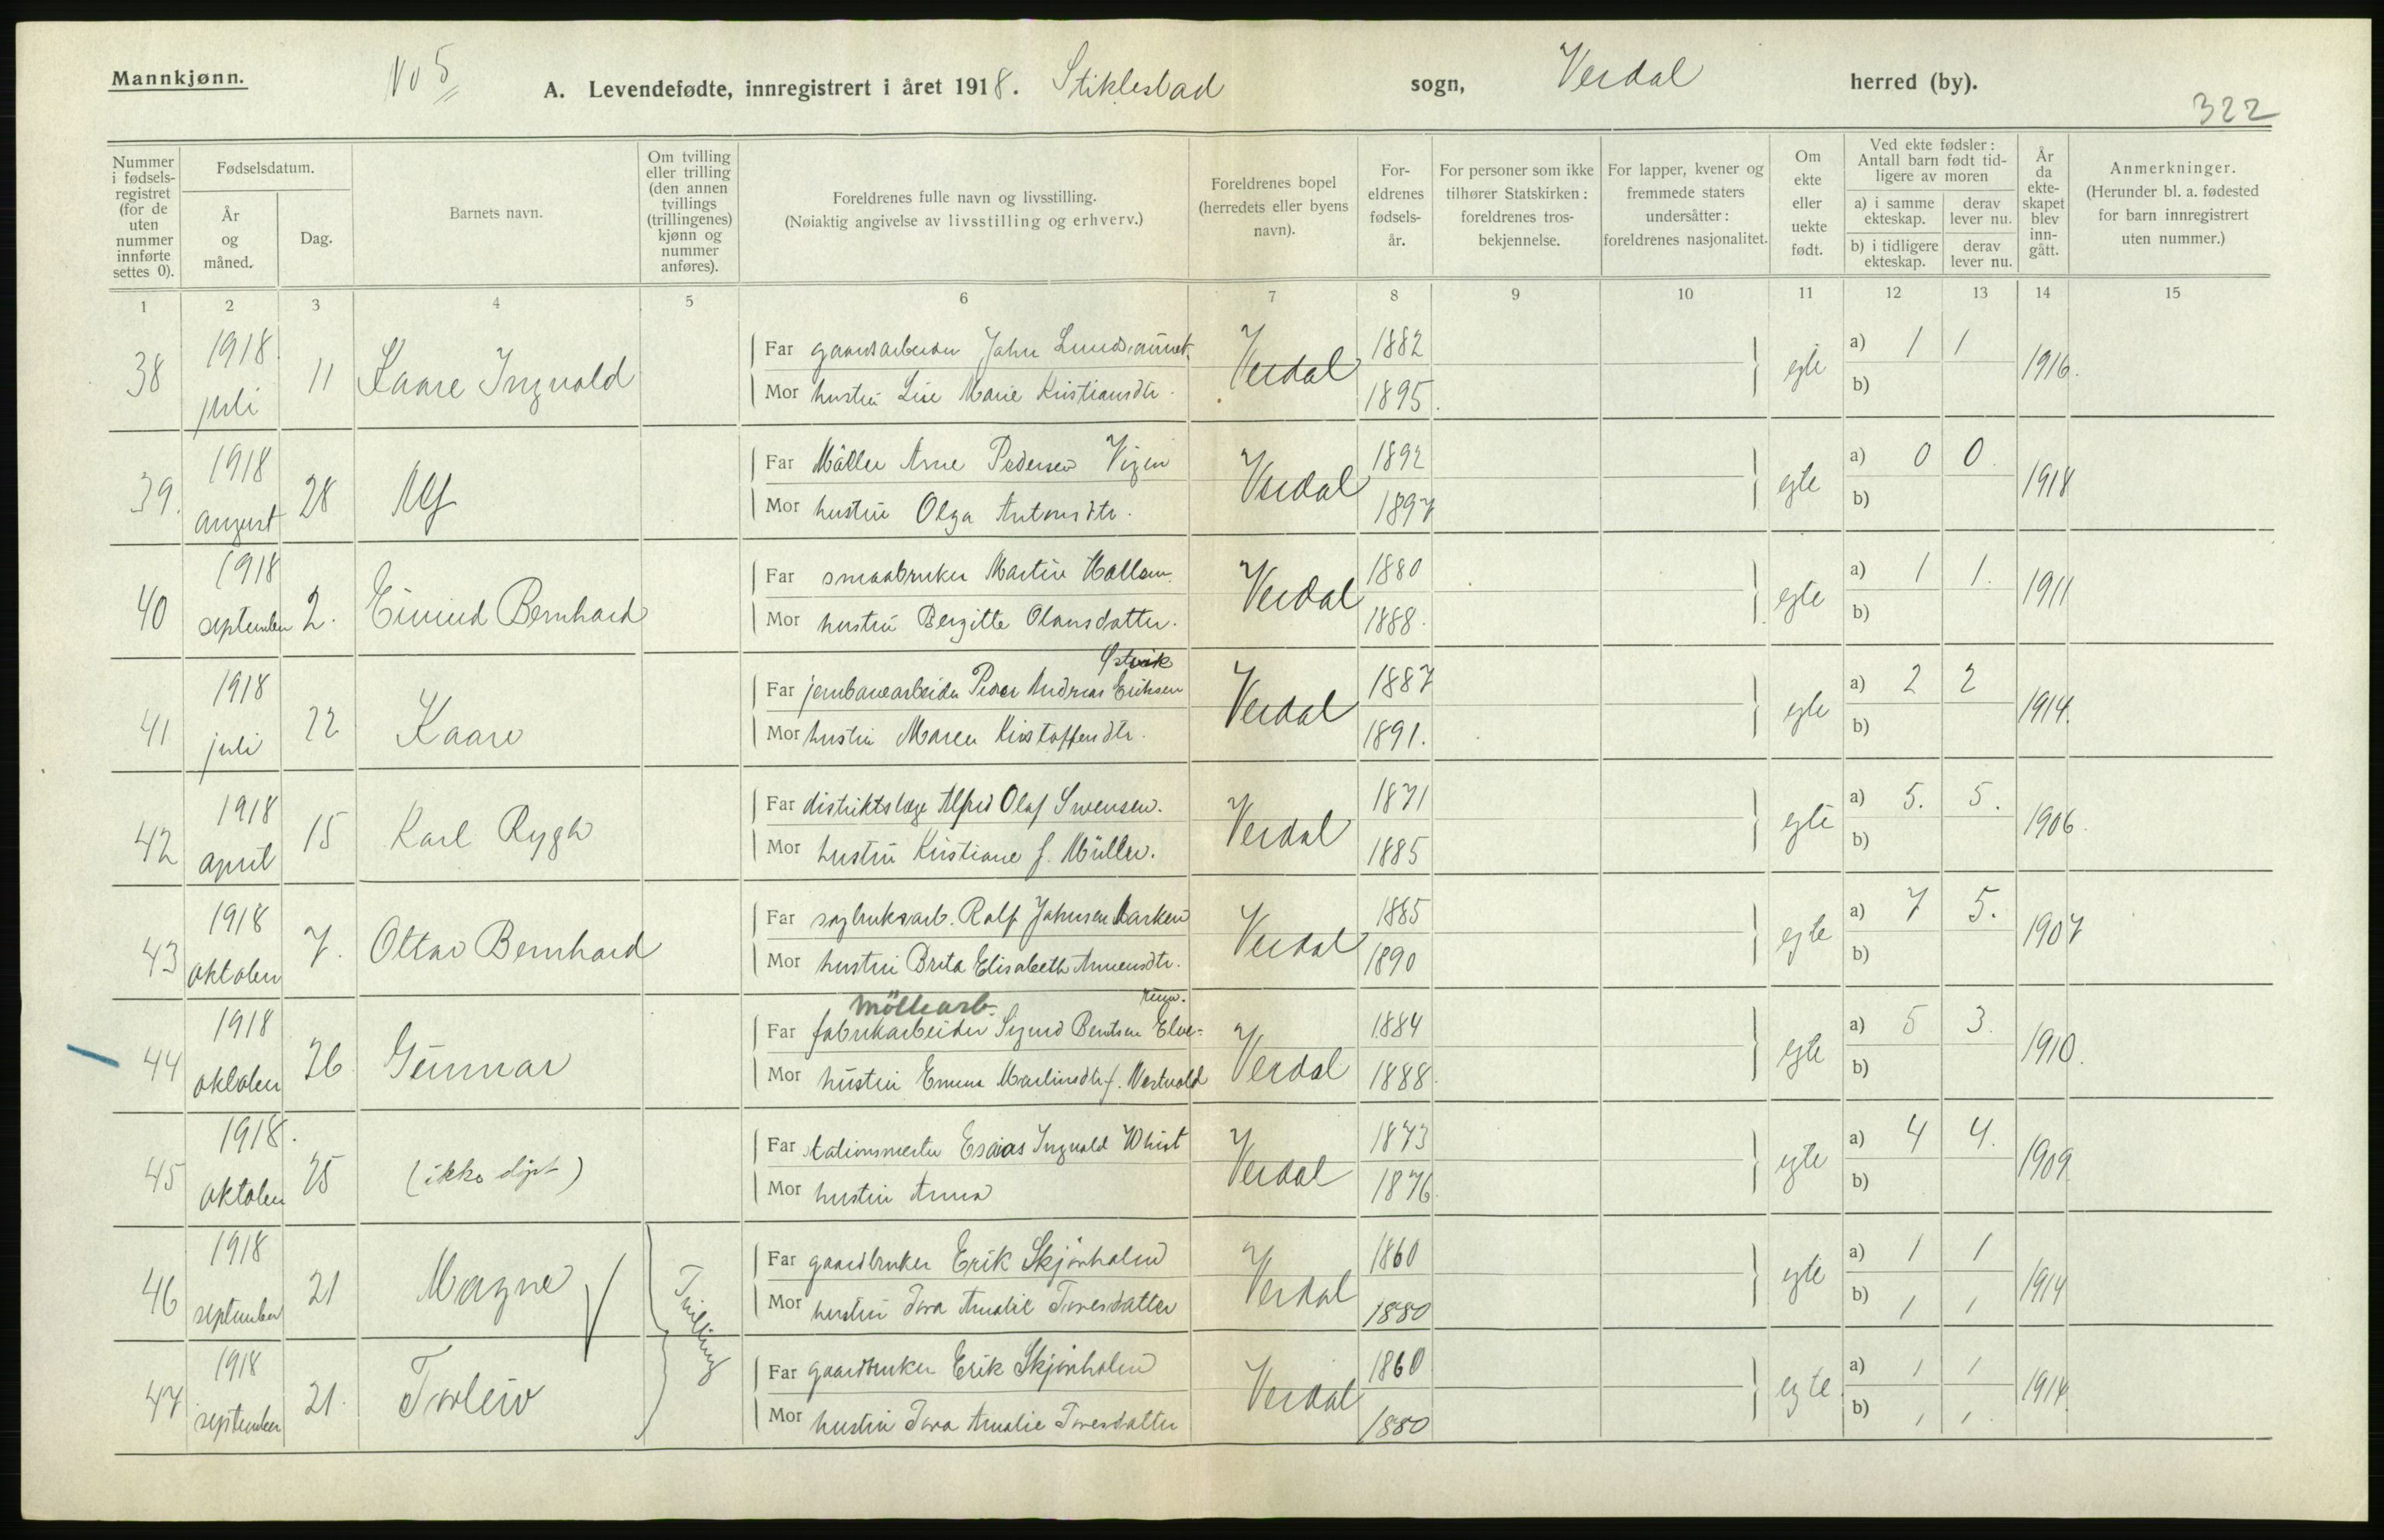 Mannkjønn.
No 5
A. Levendefødte, innregistrert i året 1918. Stiklestad sogn, Verdal herred (by).
322
Nummer i fødselsregistret (for de uten nummer innførte settes 0).
Fødselsdatum.
År og måned.
Dag.
Barnets navn.
Om tvilling eller trilling (den annen tvillings (trillingenes) kjønn og nummer anføres).
Foreldrenes fulle navn og livsstilling. (Nøiaktig angivelse av livsstilling og erhverv.)
Foreldrenes bopel (herredets eller byens navn).
Foreldrenes fødselsår.
For personer som ikke tilhører Statskirken: foreldrenes trosbekjennelse.
For lapper, kvener og fremmede staters undersåtter: foreldrenes nasjonalitet.
Om ekte eller uekte født.
Ved ekte fødsler: Antall barn født tidligere av moren
a) i samme ekteskap. derav lever nu.
b) i tidligere ekteskap. derav lever nu.
År da ekteskapet blev inngått.
Anmerkninger. (Herunder bl. a. fødested for barn innregistrert uten nummer.)
1 2 3 4 5 6 7 8 9 10 11 12 13 14 15
38 1918 juli 11 Kaare Ingvald
Far gaardsarbeider John Verdal 1882 egte a) 1 1 1916.
Mor hustru Lise Marie Kristiansdtr. 1895. b)
39. 1918 august 28 Alf
Far Møller Arne Pedersen Vizen Verdal 1892 egte a) 0 0. 1918
Mor hustru Olga Antonsdtr. 1897 b)
40 1918 september 2. Eivind Bernhard
Far smaabruker Martin Hallem Verdal 1880 egte a) 1 1. 1911
Mor hustru Bergitte Olausdatter. 1888. b)
41 1918 juli 22 Kaare
Østvik
Far jernbanearbeider Peder Andreas Eriksen Verdal 1887 egte a) 2 2 1914.
Mor hustru Maren Kristoffersdtr. 1891. b)
42 1918 april 15 Karl Rygh
Far distriktslæge Alfred Olaf Swensen. Verdal 1871 egte a) 5. 5. 1906.
Mor hustru Kristiane f. Müller. 1885 b)
43 1918 oktober 7. Ottar Bernhard
Far sagbruksarb. Rolf Johnsen Marken Verdal 1885 egte a) 7 5. 1907
Mor hustru Brita Elisabeth 1890 b)
Møllearb.
44 1918 oktober 26 Gunnar
Far fabrikarbeider Sigurd Bentsen Verdal 1884 egte a) 5 3. 1910.
Mor hustru Emma Martinsdtr f. Vestvold 1888. b)
45 1918. oktober 25 (ikke døpt)
Far stationsmester Esaias Ingvald Whist Verdal 1873 egte a) 4 4. 1909.
Mor hustru Anna 1876. b)
46 1918 september 21 Magne
Tvilling
Far gaardbruker Erik Skjørholm Verdal 1860 egte a) 1 1 1914
Mor hustru Tora Amalie Toresdatter 1880 b) 1 1
47 1918 september 21. Torleiv
Far gaardbruker Erik Skjørholm Verdal 1860 egte a) 1 1 1914.
Mor hustru Tora Amalie Toresdatter 1880 b) 1 1.